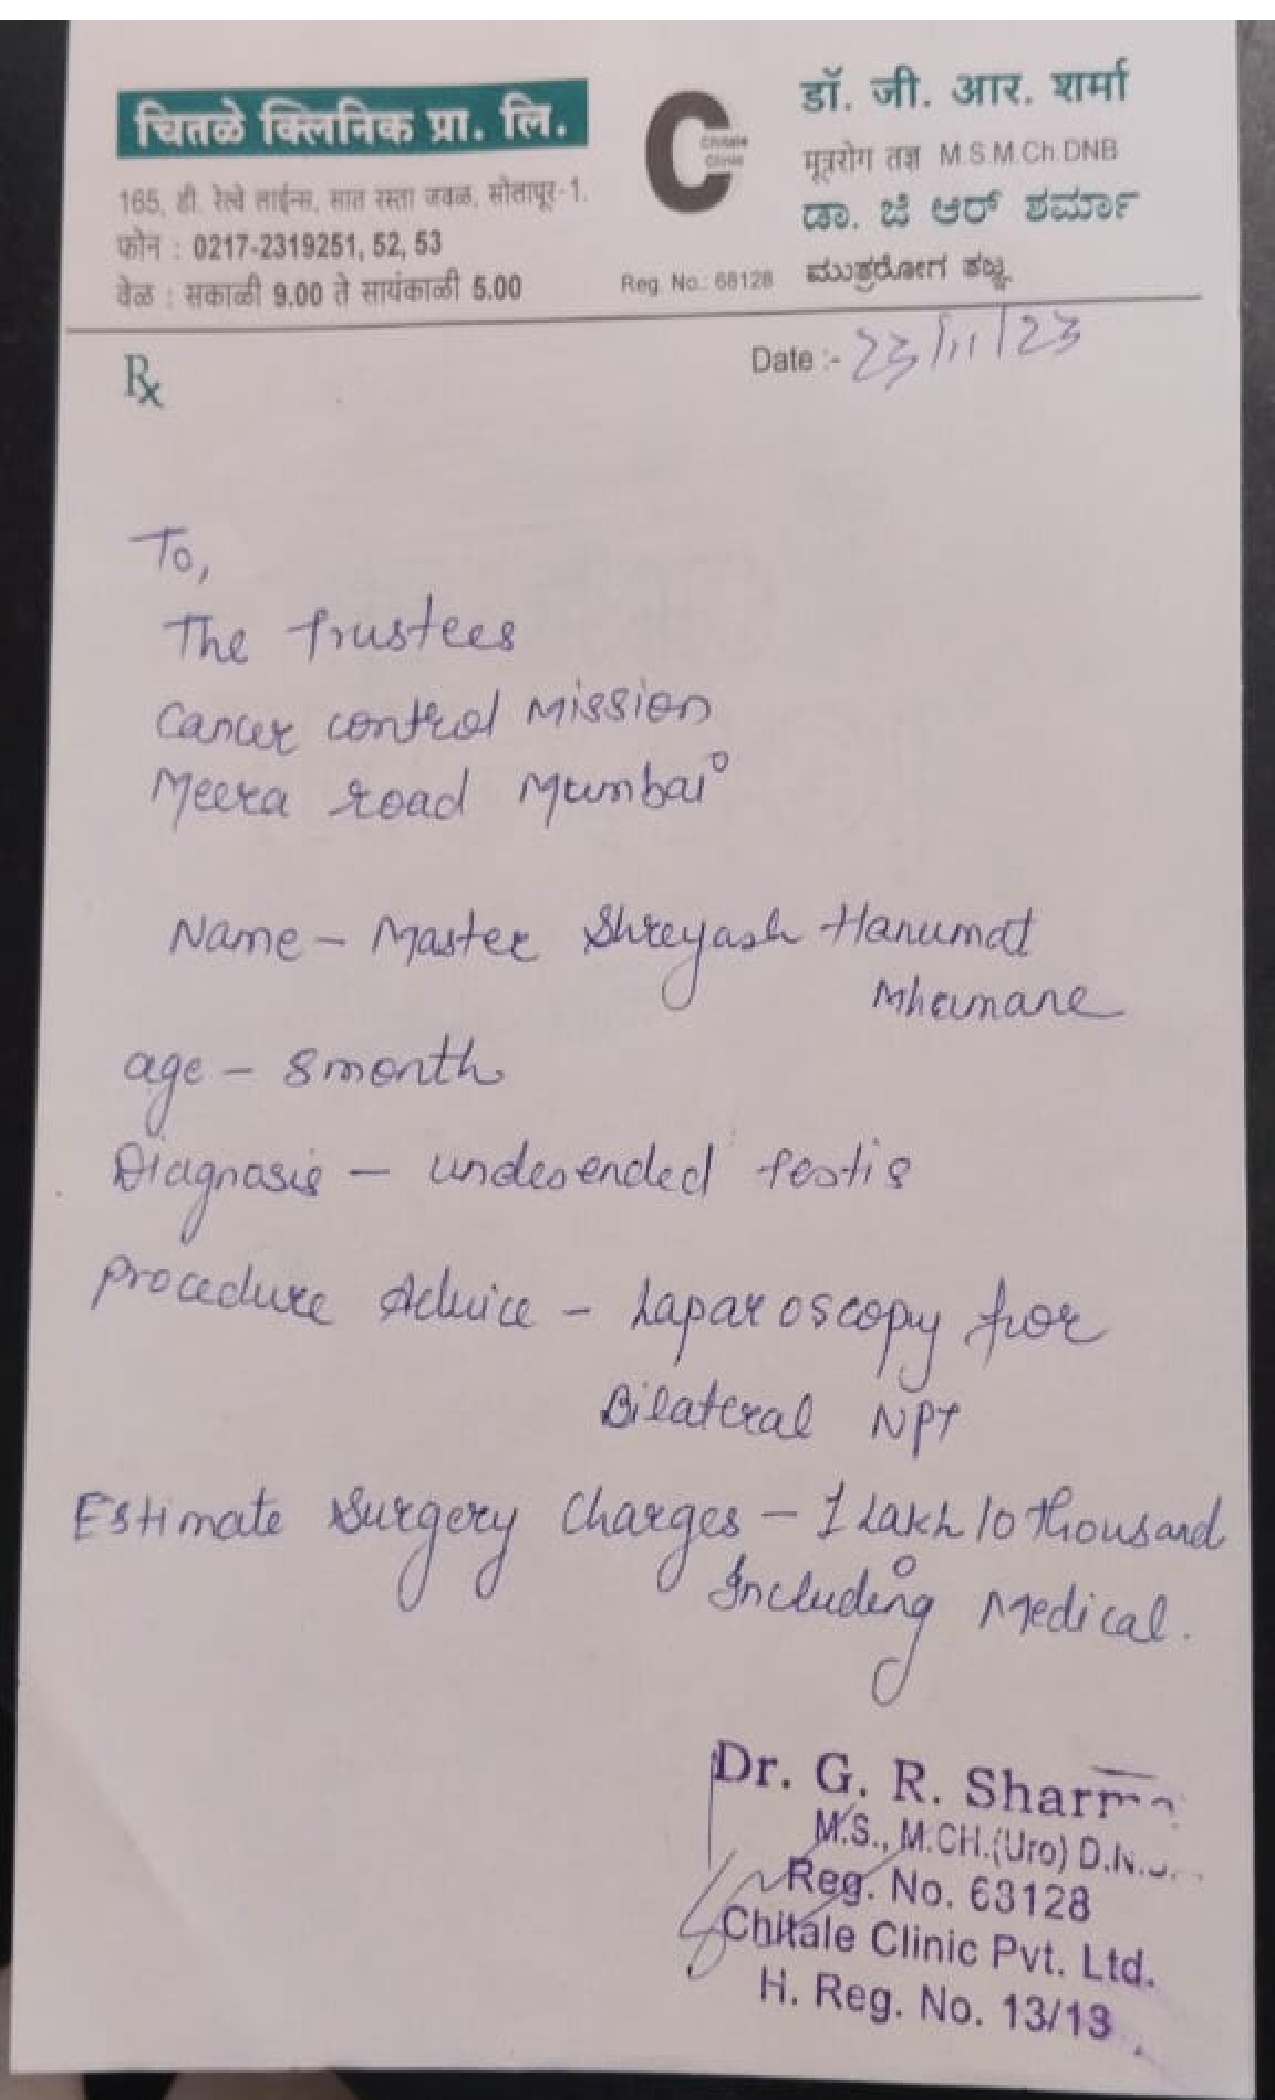 चितळे क्लिनिक प्रा. लि.
165, डी. रेल्वे लाईन्स, सात रस्ता जवळ, सोलापूर-1.
फोन : 0217-2319251, 52, 53
वेळ : सकाळी 9.00 ते सायंकाळी 5.00
Chitale
Clinic
Reg. No.: 68128
डॉ. जी. आर. शर्मा
मूत्ररोग तज्ञ M.S.M.Ch.DNB
ಡಾ. ಜಿ ಆರ್ ಶರ್ಮಾ
ಮುತ್ರರೋಗ ತಜ್ಞ
Rx
Date :- 23/11/23
To,
The Trustees
Cancer control Mission
Meera road Mumbai
Name - Master Shreyash Hanumat
Mhamane
age - 8 month
Diagnosis - undesended testis
Procedure Advice - Laparoscopy for
Bilateral NPT
Estimate Surgery Charges - 1 Lakh 10 thousand
Including Medical.
Dr. G. R. Sharma
M.S., M.CH.(Uro) D.N.
Reg. No. 63128
Chitale Clinic Pvt. Ltd.
H. Reg. No. 13/13